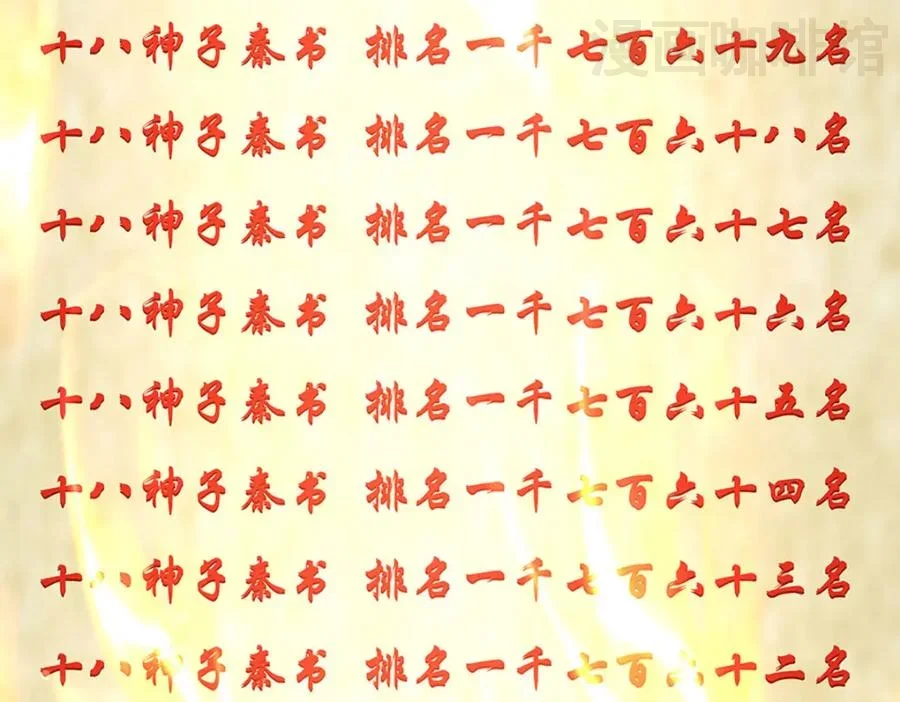 十八神子秦书 排名一千七百六十九名
漫画咖啡馆
十八神子秦书 排名一千七百六十八名
十八神子秦书 排名一千七百六十七名
十八神子秦书 排名一千七百六十六名
十八神子秦书 排名一千七百六十五名
十八神子秦书 排名一千七百六十四名
十八神子秦书 排名一千七百六十三名
十八神子秦书 排名一千七百六十二名